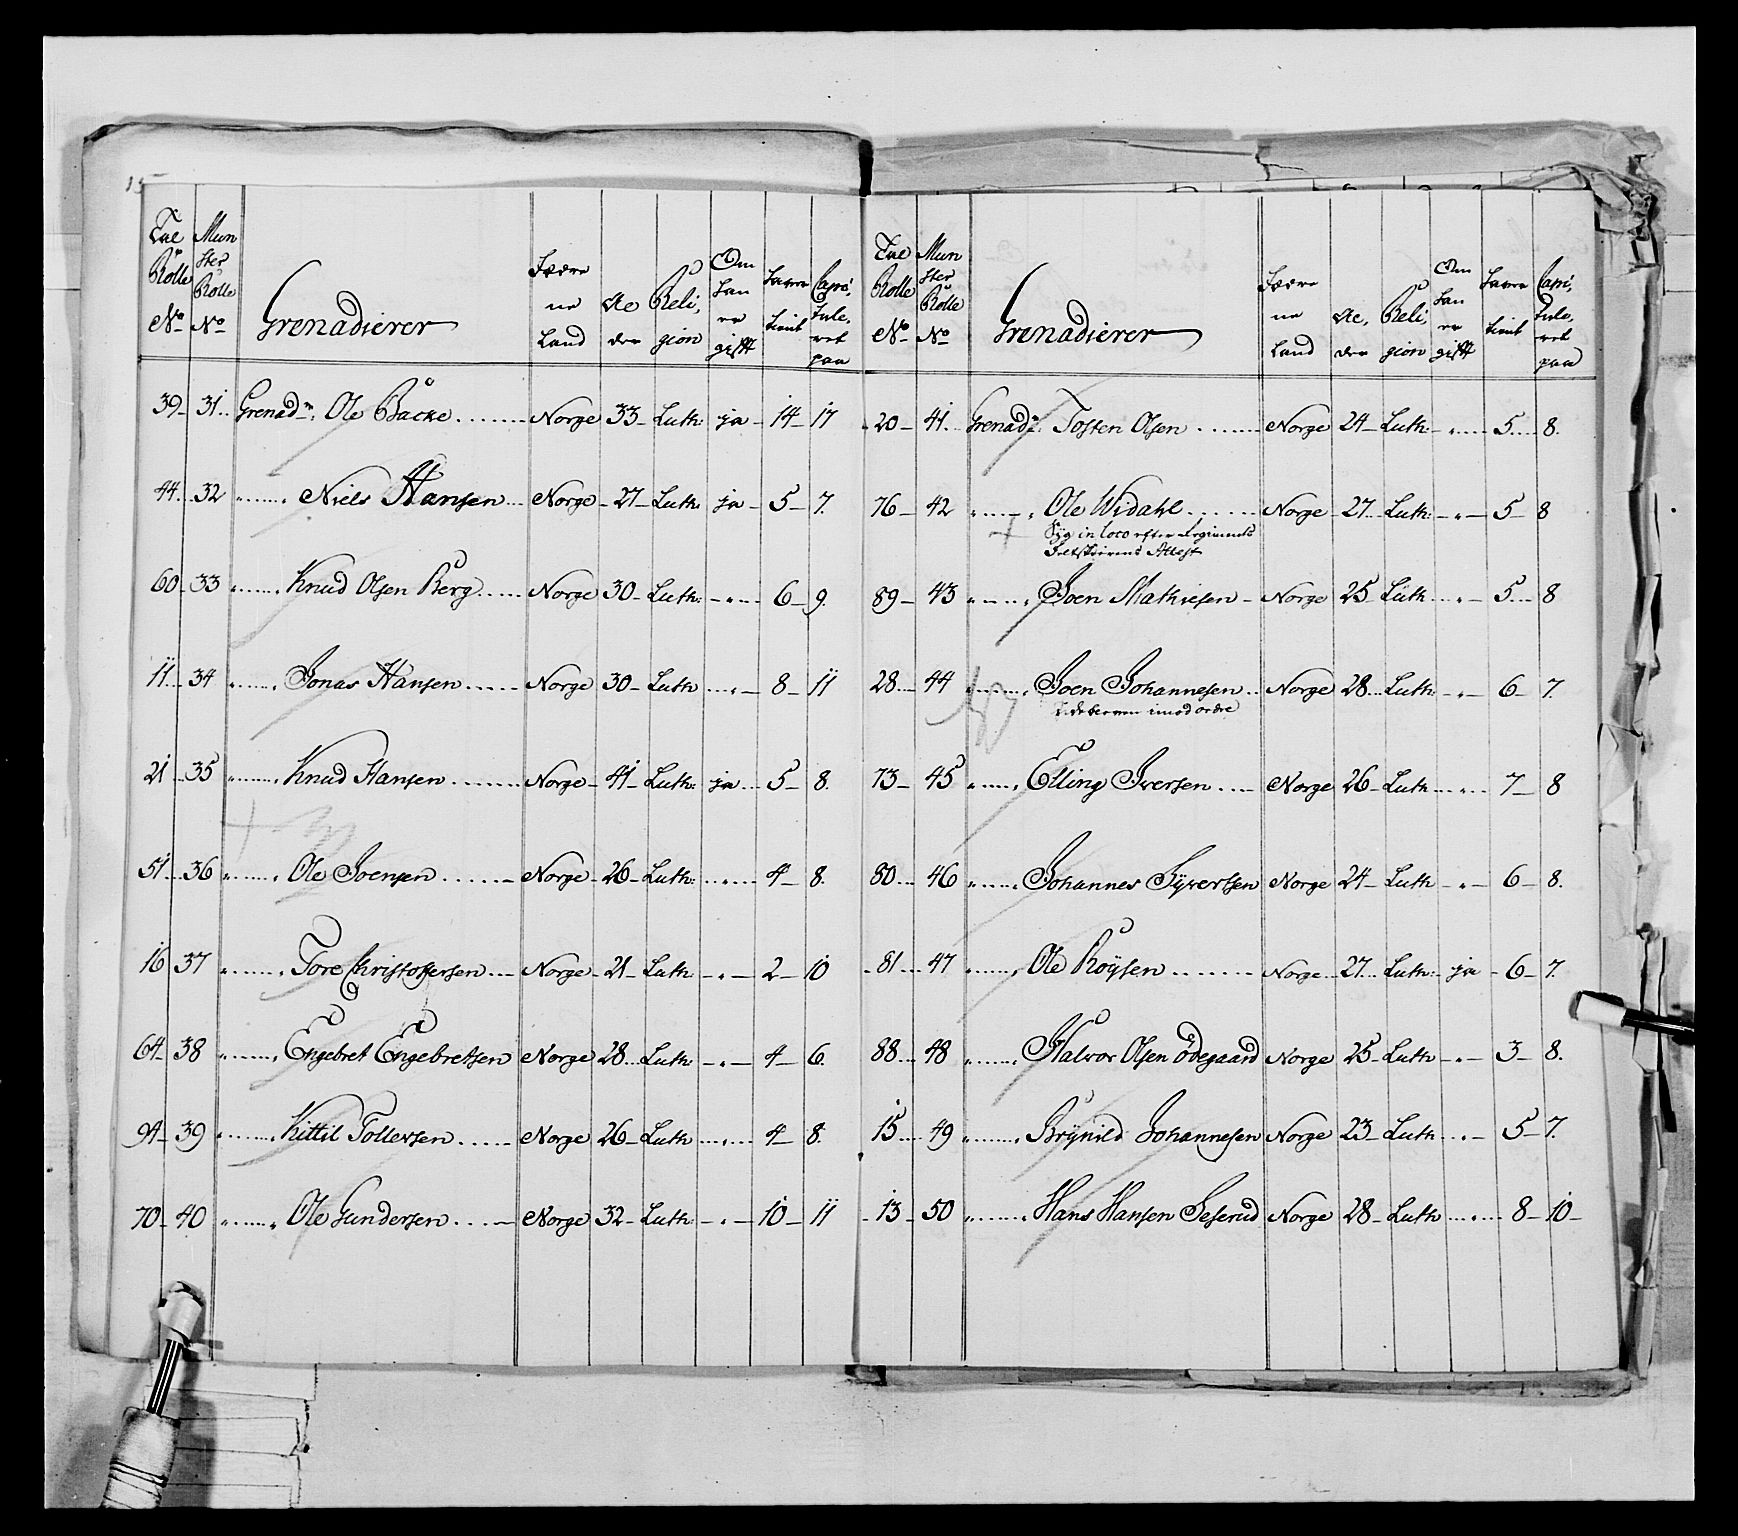 15
Tal Rolle No | Mun ster Rolle No | Grenadierer | Fædre ne Land | Al der | Reli, gion | Om han er gift | haver tient | Capi, tule, ret paa
39 31 Grenadr: Ole Backe Norge 33 Luth: ja 14 17
44 32 " " Niels Hansen Norge 27 Luth: ja 5 7.
60 33 " " Knud Olsen Berg Norge 30 Luth: " 6 9.
11 34 " " Jonas Hansen Norge 30 Luth " 8 11
21 35 " " Knud Hansen Norge 41 Luth: ja 5 8.
51 36 " " Ole Joensen Norge 26 Luth: " 4 8.
16 37 " " Tore Christophersen Norge 21 Luth " 2 10
64 38 " " Engebret Engebretsen Norge 28 Luth: " 4 6.
94 39 " " Kittil Tollersen Norge 26 Luth " 4 8.
70 40 " " Ole Gundersen Norge 32 Luth " 10 11
Tal Rolle No | Mun ster Rolle No | Grenadierer | Fædre ne Land | Al, der | Reli, gion | Om han er gift | haver tient | Capi, tule, ret paa
20 41 Grenadr: Tosten Olsen Norge 24 Luth: " 5 8.
76 42 " " Ole Widahl Norge 27 Luth: " 5 8
Syg in loco efter Regiments
Feltskiærens Attest
89 43 " " Joen Mathiesen Norge 25 Luth: " 5 8
28 44 " " Joen Johannesen Norge 28 Luth: " 6 7.
Udebleven imod ordre
73 45 " " Elling Iversen Norge 26 Luth " 7 8
80 46 " " Johannes Syvertsen Norge 24 Luth " 6 8.
81 47 " " Ole Röysen Norge 27 Luth: ja 6 7.
88 48 " " Halvor Olsen Ödegaard Norge 25 Luth " 3 8.
15 49 " " Brynild Johannesen Norge 23 Luth " 5 7.
13 50 " " Hans Hansen Seserud Norge 28 Luth " 8 10